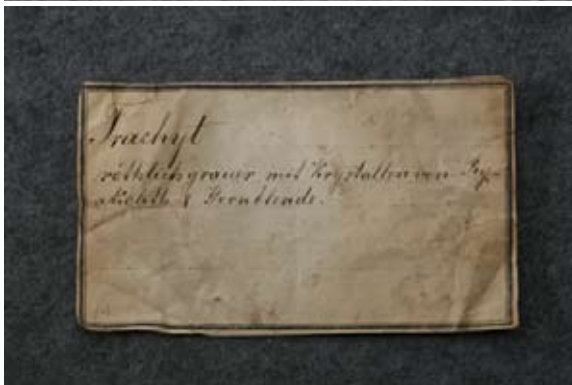 Trachyt
röthlichgrauer mit Krystallen von
& Hornblende.